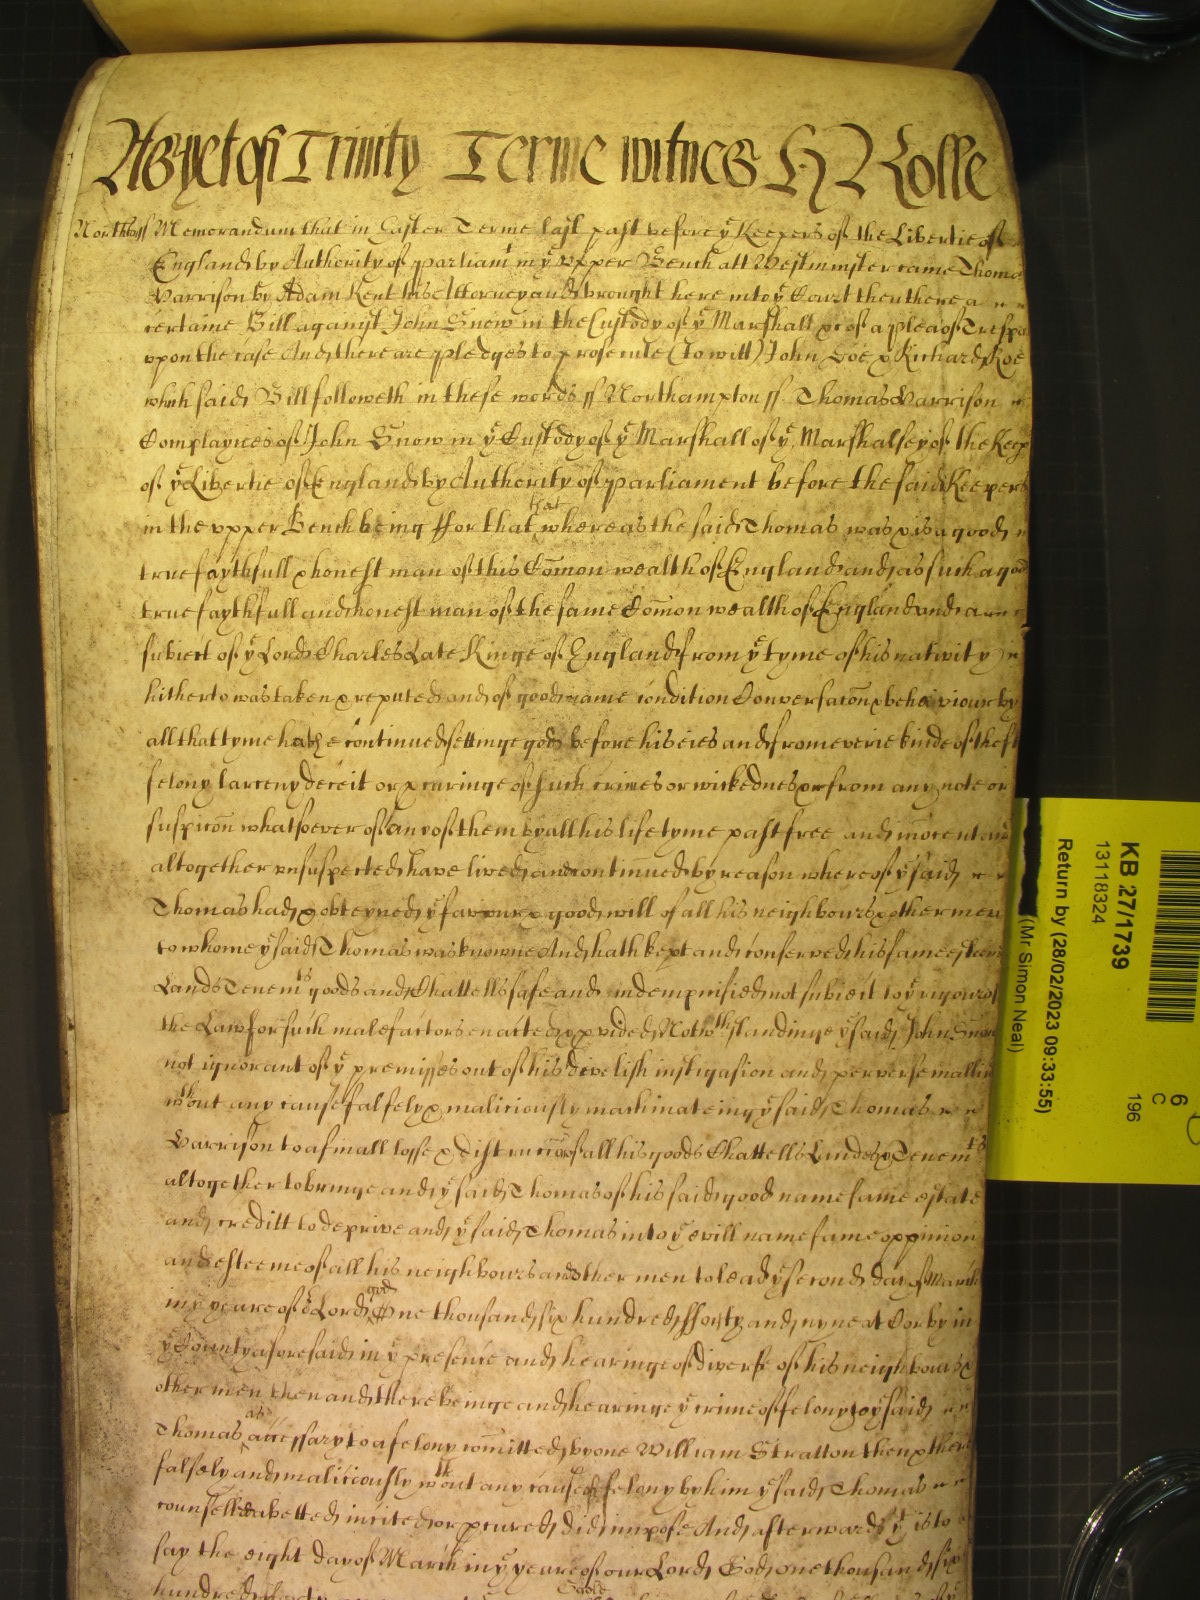 As yet of Trinity Terme witnes H Rolle
North'ton ss Memorandum that in Easter Terme last past before ye Keepers of the Libertie of
England by Authority of parliamt in ye vpper Bench att Westminster came Thomas
Varrison by Adam Kent his Attorney and brought here into ye Court then there a
certaine Bill against John Snow in the Custody of ye Marshall &c of a plea of Trespas
vpon the case And there are pledges to prosecute (To witt) John Doe & Richard Roe
which said Bill followeth in these words ss Northampton ss Thomas Varrison
Complaynes of John Snow in ye Custody of ye Marshall of ye Marshalsey of the Keep
of ye Libertie of England by Authority of parliament before the said Keepers
in the vpper Bench being ffor that that whereas the said Thomas was & is a good
true faythfull & honest man of this Com̄on wealth of England and as such a good
true faythfull and honest man of the same Com̄on wealth of England and a
subiect of ye Lord Charles Late Kinge of England from ye tyme of his nativity
hitherto was taken & reputed and of good name condition Conversac̄on & behaviour by
all that tyme hath continued settinge god before his eies and from everie kinde of theft
felony larceny deceit or pcuringe of such crimes or wickednes or from any note or
suspic̄on whatsoever of any of them by all his life tyme past free and in̄ocent and
altogether vnsuspected have lived and continued by reason whereof ye said
Thomas had & obteyned ye favour & good will of all his neighbours & other men
to whome ye said Thomas was knowne And hath kept and conserved his fame esteem
Lands Tenemts goods and Chattells safe and indempnified not subiect to ye rigour of
the Law for such malefactors enacted & pvided Notwthstandinge ye said John Snow
not ignorant of ye premisses out of his divelish instigasion and perverse mallice
wthout any cause falsely & maliciously machinateing ye said Thomas
Varrison to a finall losse & distrucc̄on of all his goods Chattells Lands & Tenemts
altogether to bringe and ye said Thomas of his said good name fame estate
and creditt to deprive and ye said Thomas into ye evill name fame oppinion
and esteeme of all his neighbours and other men to lead ye second day of March
in ye yeare of or Lord god One thousand six hundred fforty and nyne at Corby in
ye County aforesaid in ye presence and hearinge of diverse of his neighbours &
other men then and there beinge and hearinge ye crime of felony to ye said
Thomas as accessary to a felony com̄itted by one William Stratton then & there
falsely and maliciously wthout any cause of felony by him ye said Thomas
counselled abetted incited or pcured did impose And afterwards yt is to
say the eight day of March in ye yeare of our Lord God one thousand six
hundred forty
Goole
KB 27/1739
13118324
Return by (28/02/2023 09:33:55)
(Mr Simon Neal)
6
C
196